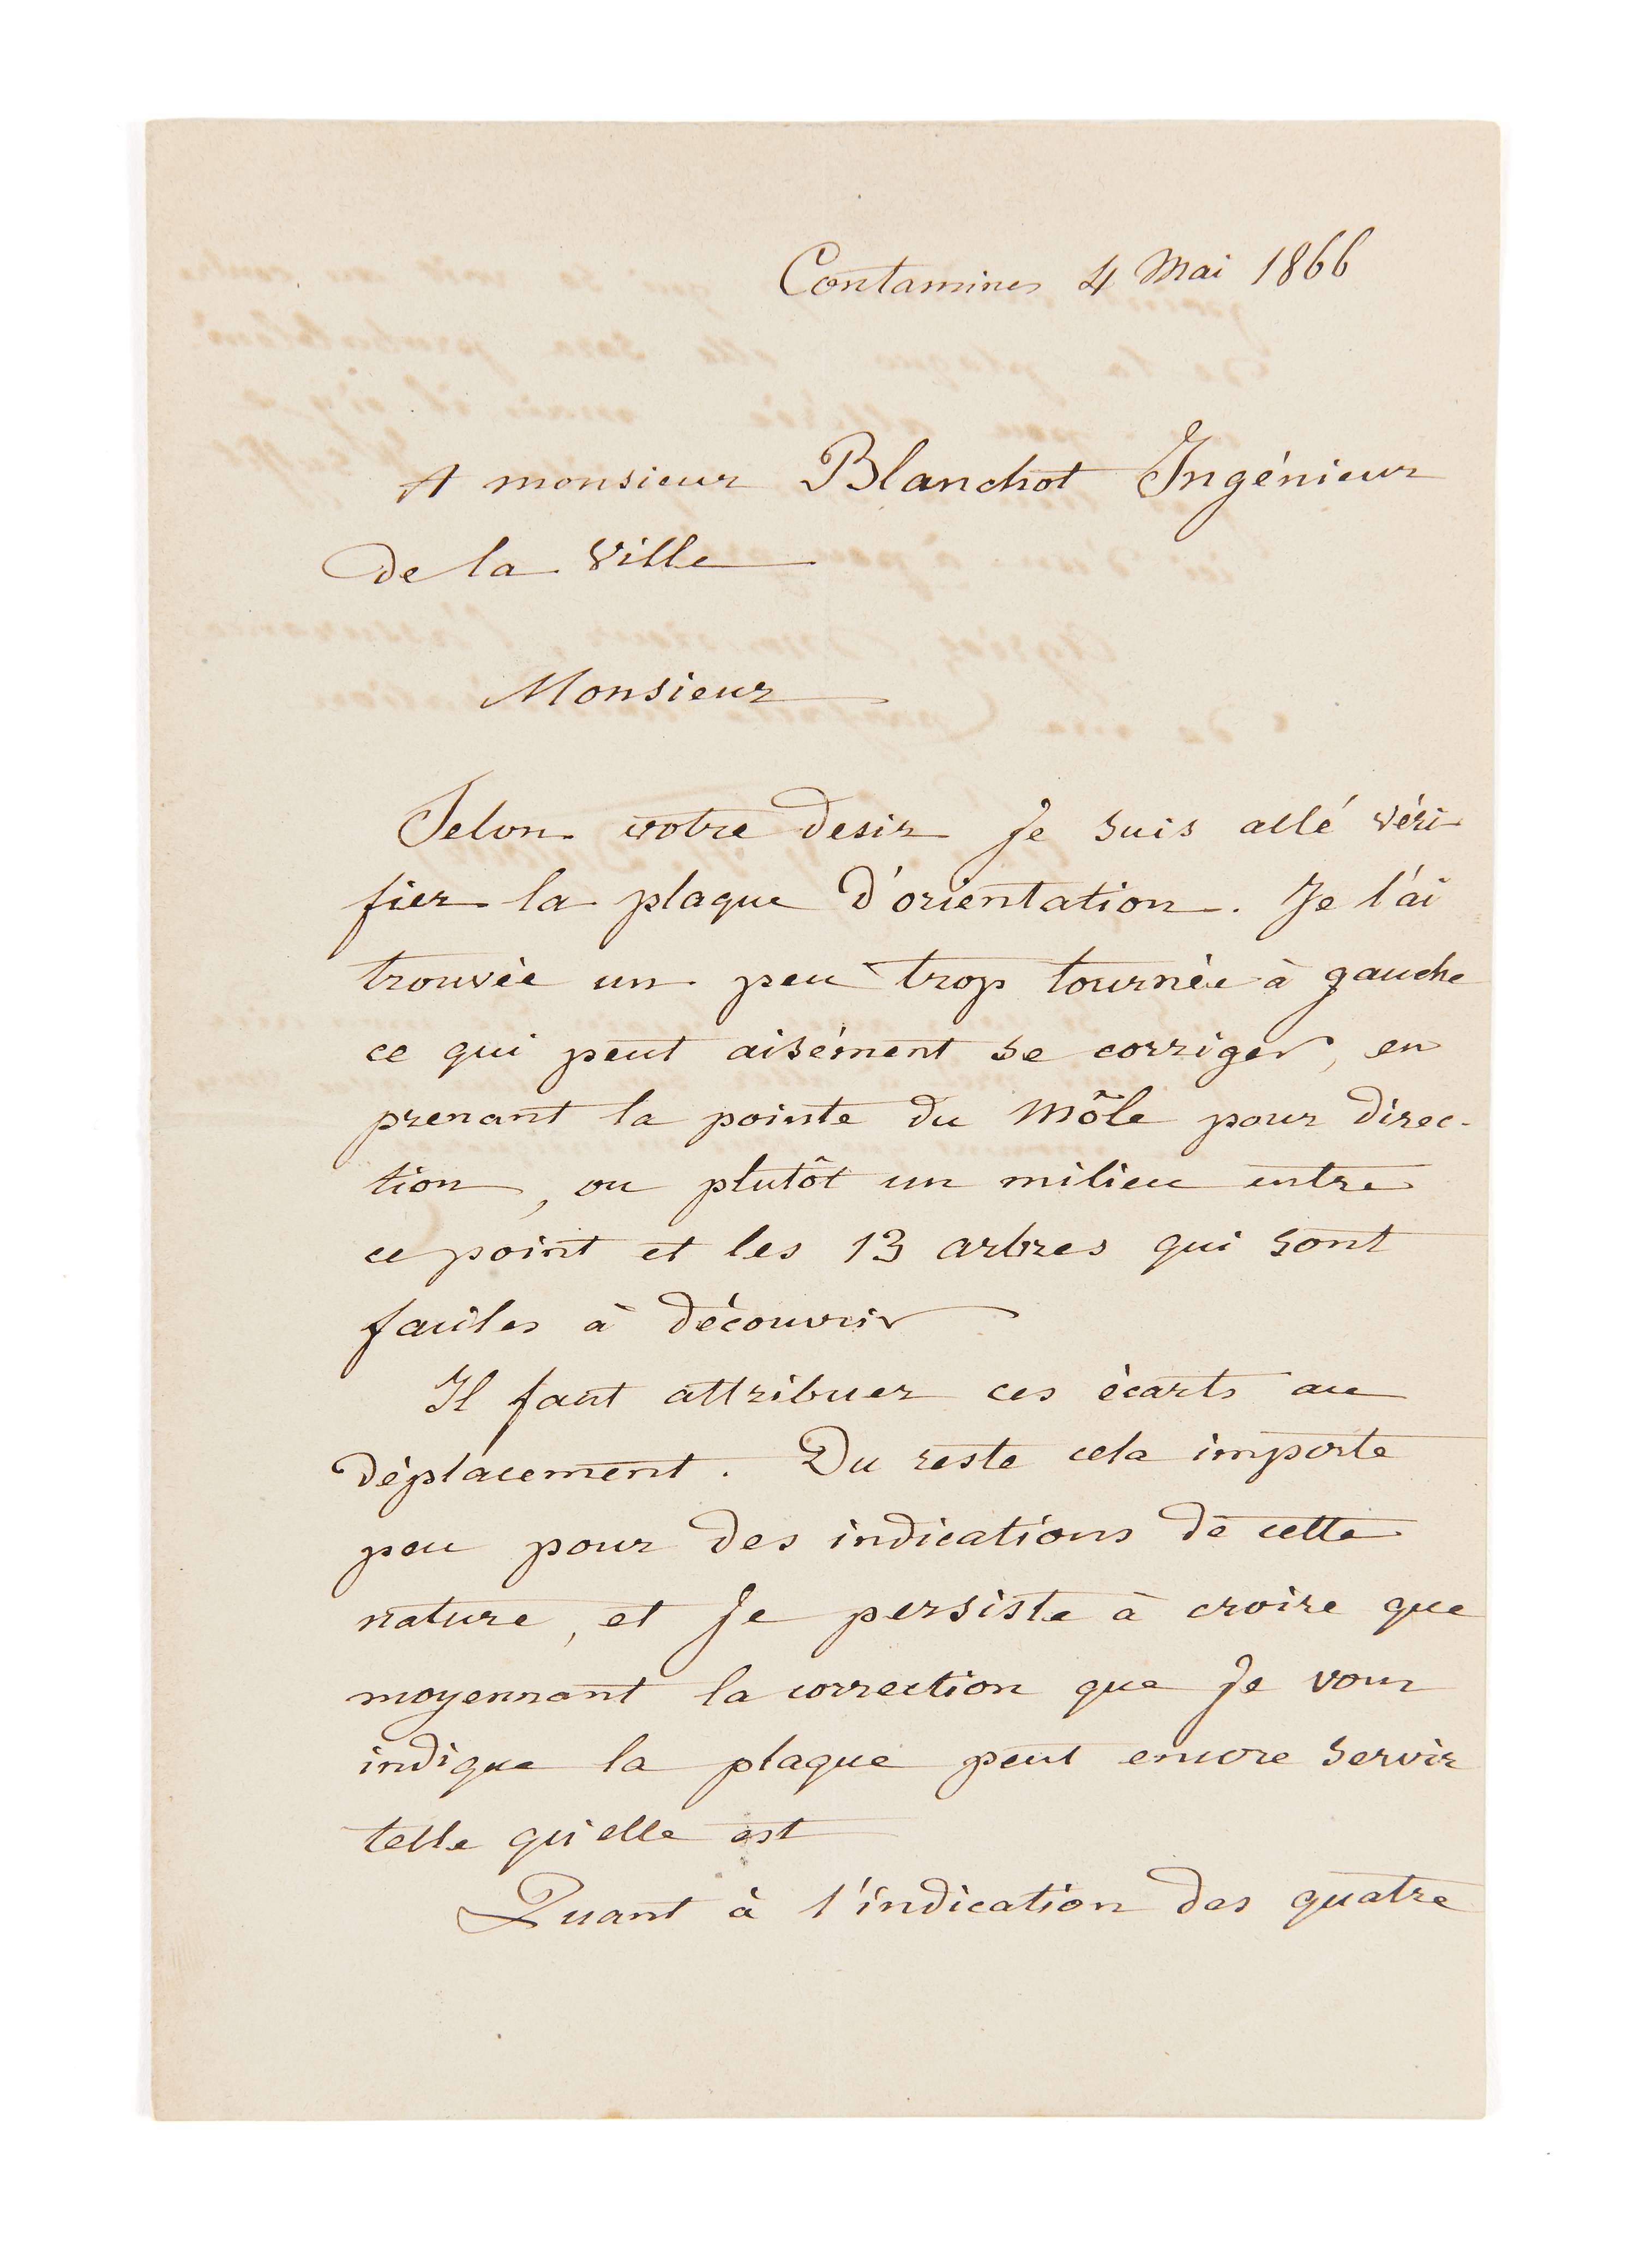 Contamines 4 Mai 1866
A monsieur Blanchot Ingénieur
de la Ville
Monsieur
Selon votre desir je suis allé véri
fier la plaque d'orientation. Je l'ai
trouvée un peu trop tournée à gauche
ce qui peut aisément se corriger, en
prenant la pointe du Môle pour direc-
tion, ou plutôt un milieu entre
ce point et les 13 arbres qui sont
faciles à découvrir
Il faut attribuer ces écarts au
déplacement. Du reste cela importe
peu pour des indications de cette
nature, et je persiste à croire que
moyennant la correction que je vous
indique la plaque peut encore servir
telle qu'elle est
Quant à l'indication des quatre